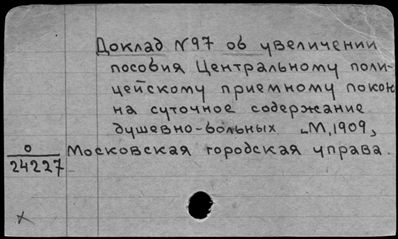 Доклад №97 об увеличении
пособия Центральному поли-
цейскому приемному покою
на суточное содержание
душевно-больных [М, 1909],
0
24227
Московская городская управа.
x